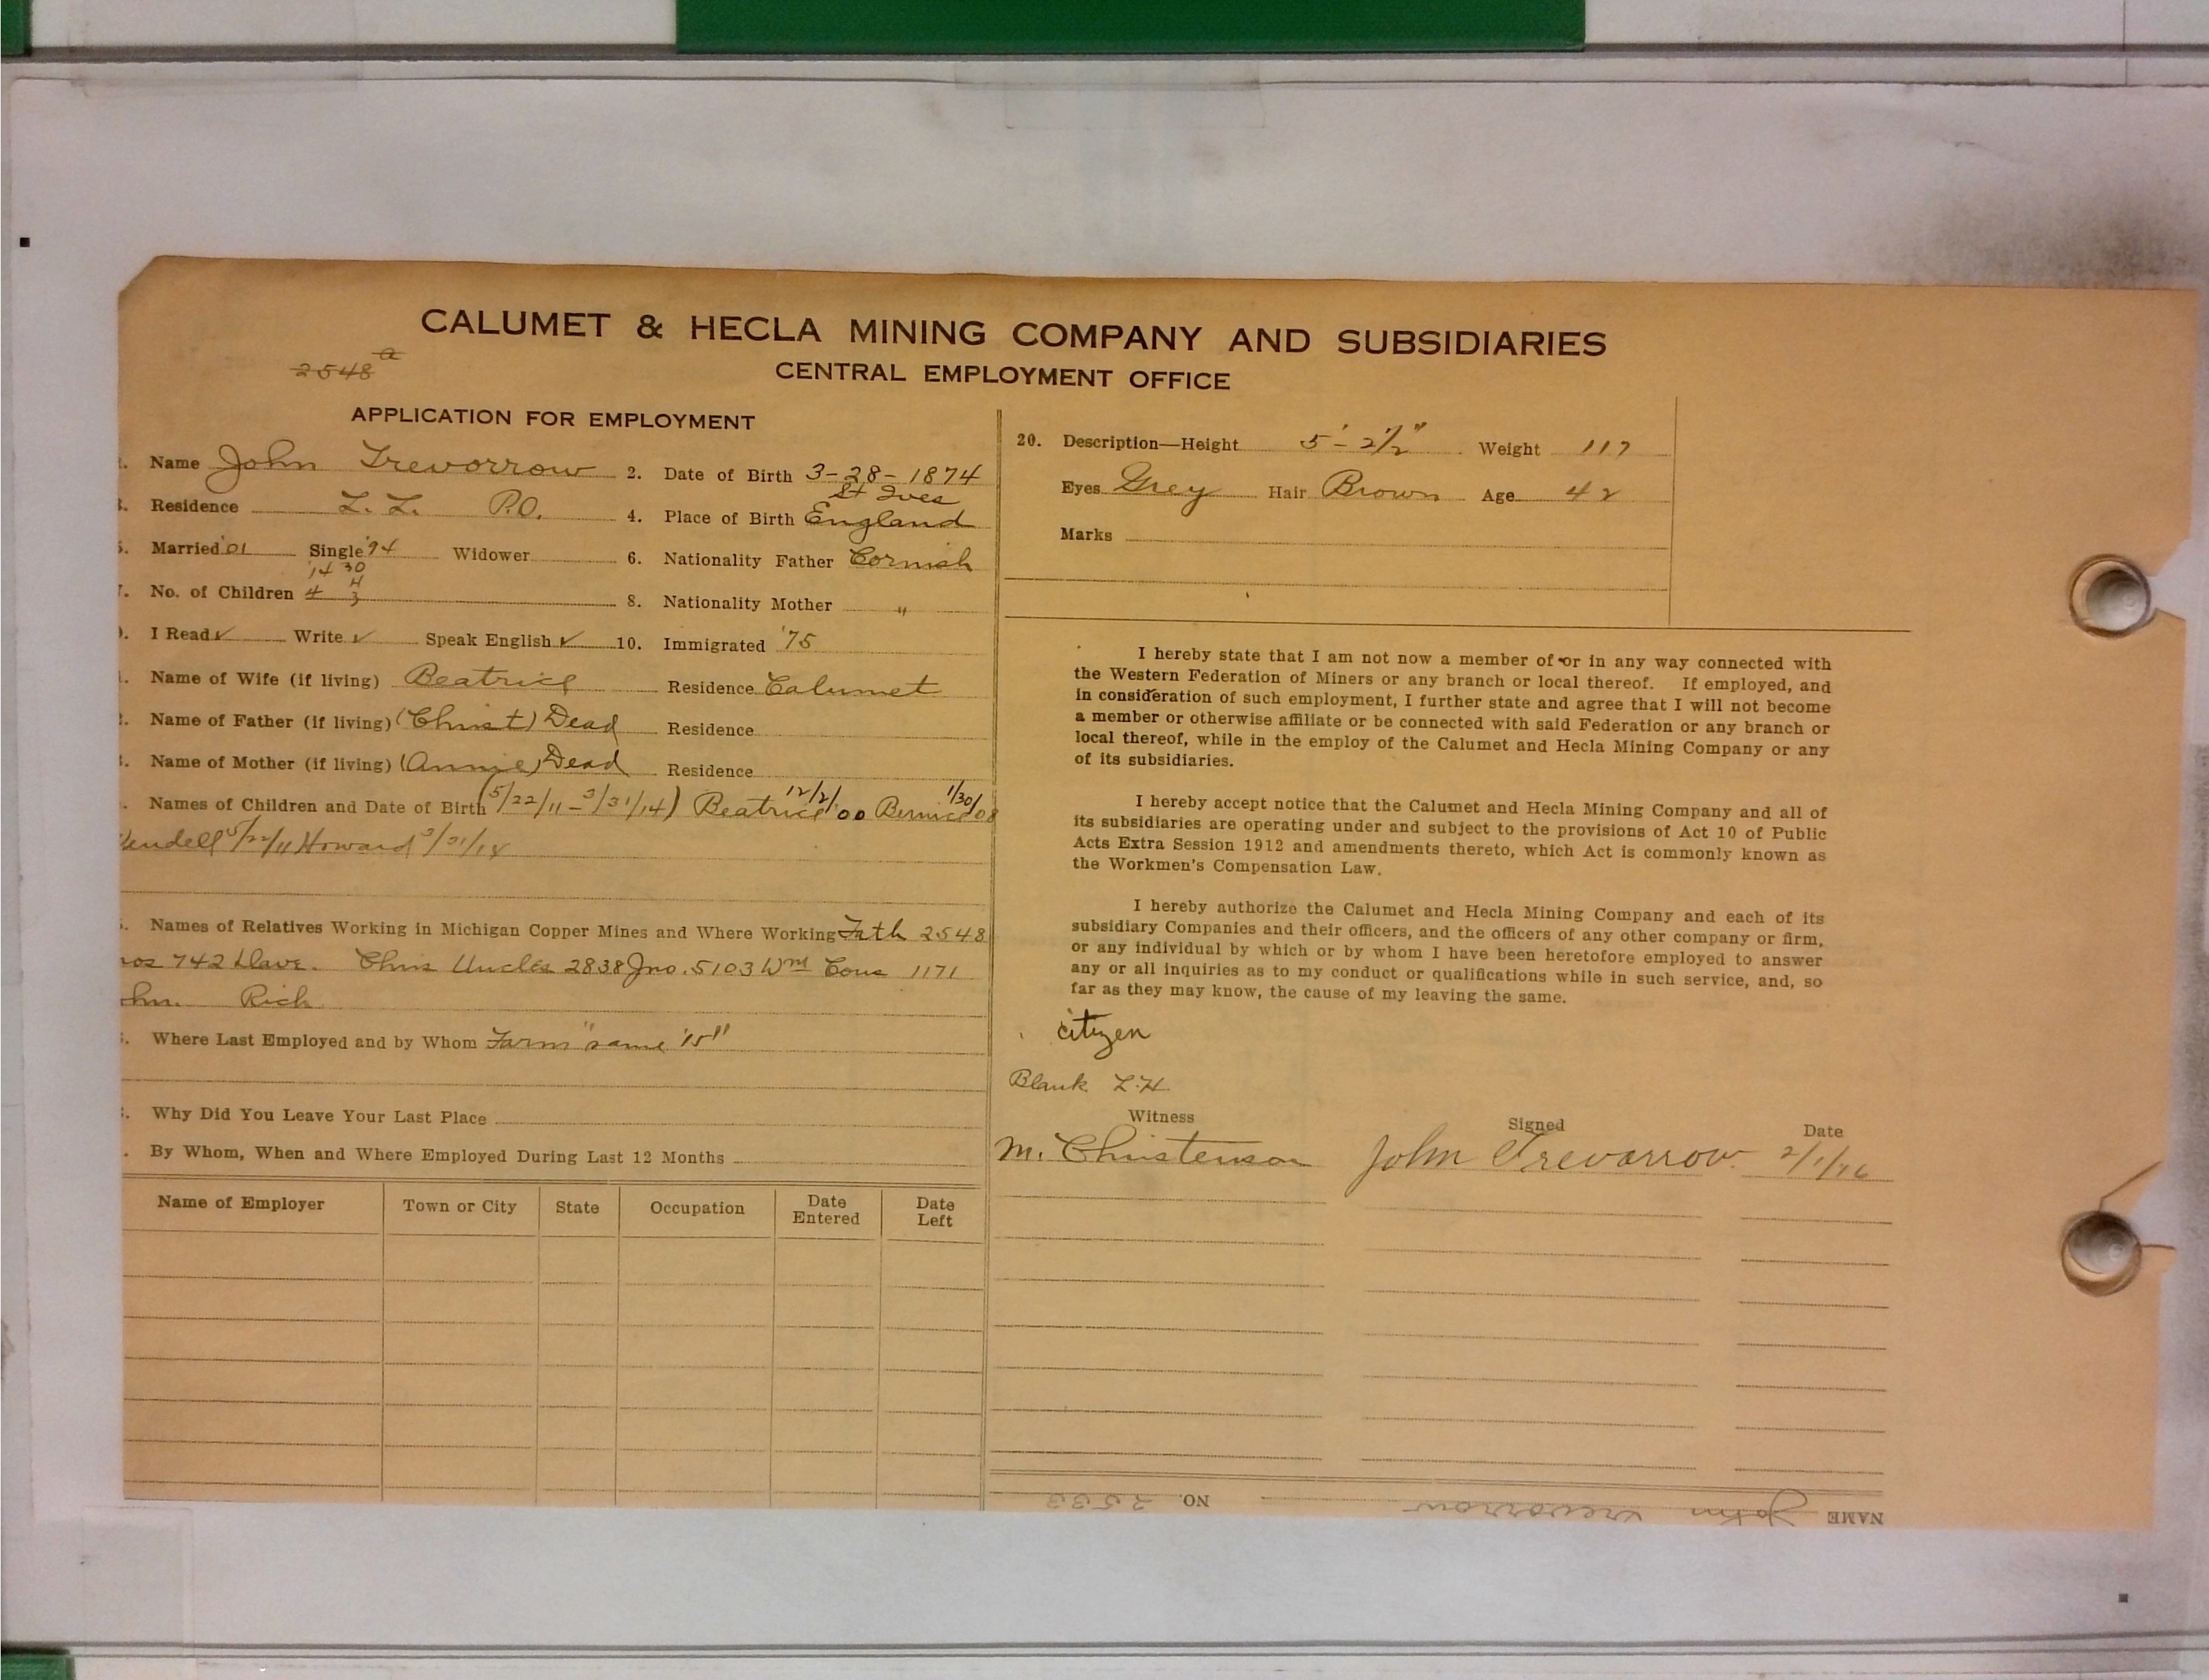 CALUMET & HECLA MINING COMPANY AND SUBSIDIARIES
2548 a
CENTRAL EMPLOYMENT OFFICE
APPLICATION FOR EMPLOYMENT
Name John Trevorrow 2. Date of Birth 3-28-1874
St Ives
Residence L. L. P.O. 4. Place of Birth England
Married '01 Single '94 Widower 6. Nationality Father Cornish
'14 30
No. of Children 4 4 3 8. Nationality Mother "
I Read ✓ Write ✓ Speak English ✓ 10. Immigrated '75
Name of Wife (if living) Beatrice Residence Calumet
Name of Father (if living) (Christ) Dead Residence
Name of Mother (if living) (Annie) Dead Residence
Names of Children and Date of Birth (5/22/11 - 3/31/14) Beatrice 12/2/'00 Bernice 1/30/08
Wendell 5/22/11 Howard 3/31/14
Names of Relatives Working in Michigan Copper Mines and Where Working Fath 2548
742 Dave. Chris Uncles 2838 Jno. 5103 Wm Cous 1171
Rich
Where Last Employed and by Whom Farm "same '15"
Why Did You Leave Your Last Place
By Whom, When and Where Employed During Last 12 Months
Name of Employer Town or City State Occupation Date Entered Date Left
20. Description—Height 5'-2½" Weight 117
Eyes Grey Hair Brown Age 42
Marks
I hereby state that I am not now a member of or in any way connected with
the Western Federation of Miners or any branch or local thereof. If employed, and
in consideration of such employment, I further state and agree that I will not become
a member or otherwise affiliate or be connected with said Federation or any branch or
local thereof, while in the employ of the Calumet and Hecla Mining Company or any
of its subsidiaries.
I hereby accept notice that the Calumet and Hecla Mining Company and all of
its subsidiaries are operating under and subject to the provisions of Act 10 of Public
Acts Extra Session 1912 and amendments thereto, which Act is commonly known as
the Workmen's Compensation Law.
I hereby authorize the Calumet and Hecla Mining Company and each of its
subsidiary Companies and their officers, and the officers of any other company or firm,
or any individual by which or by whom I have been heretofore employed to answer
any or all inquiries as to my conduct or qualifications while in such service, and, so
far as they may know, the cause of my leaving the same.
citizen
Blank L.H.
Witness Signed Date
M. Christenson John Trevarrow 2/1/16
NAME John Trevorrow NO. 2533